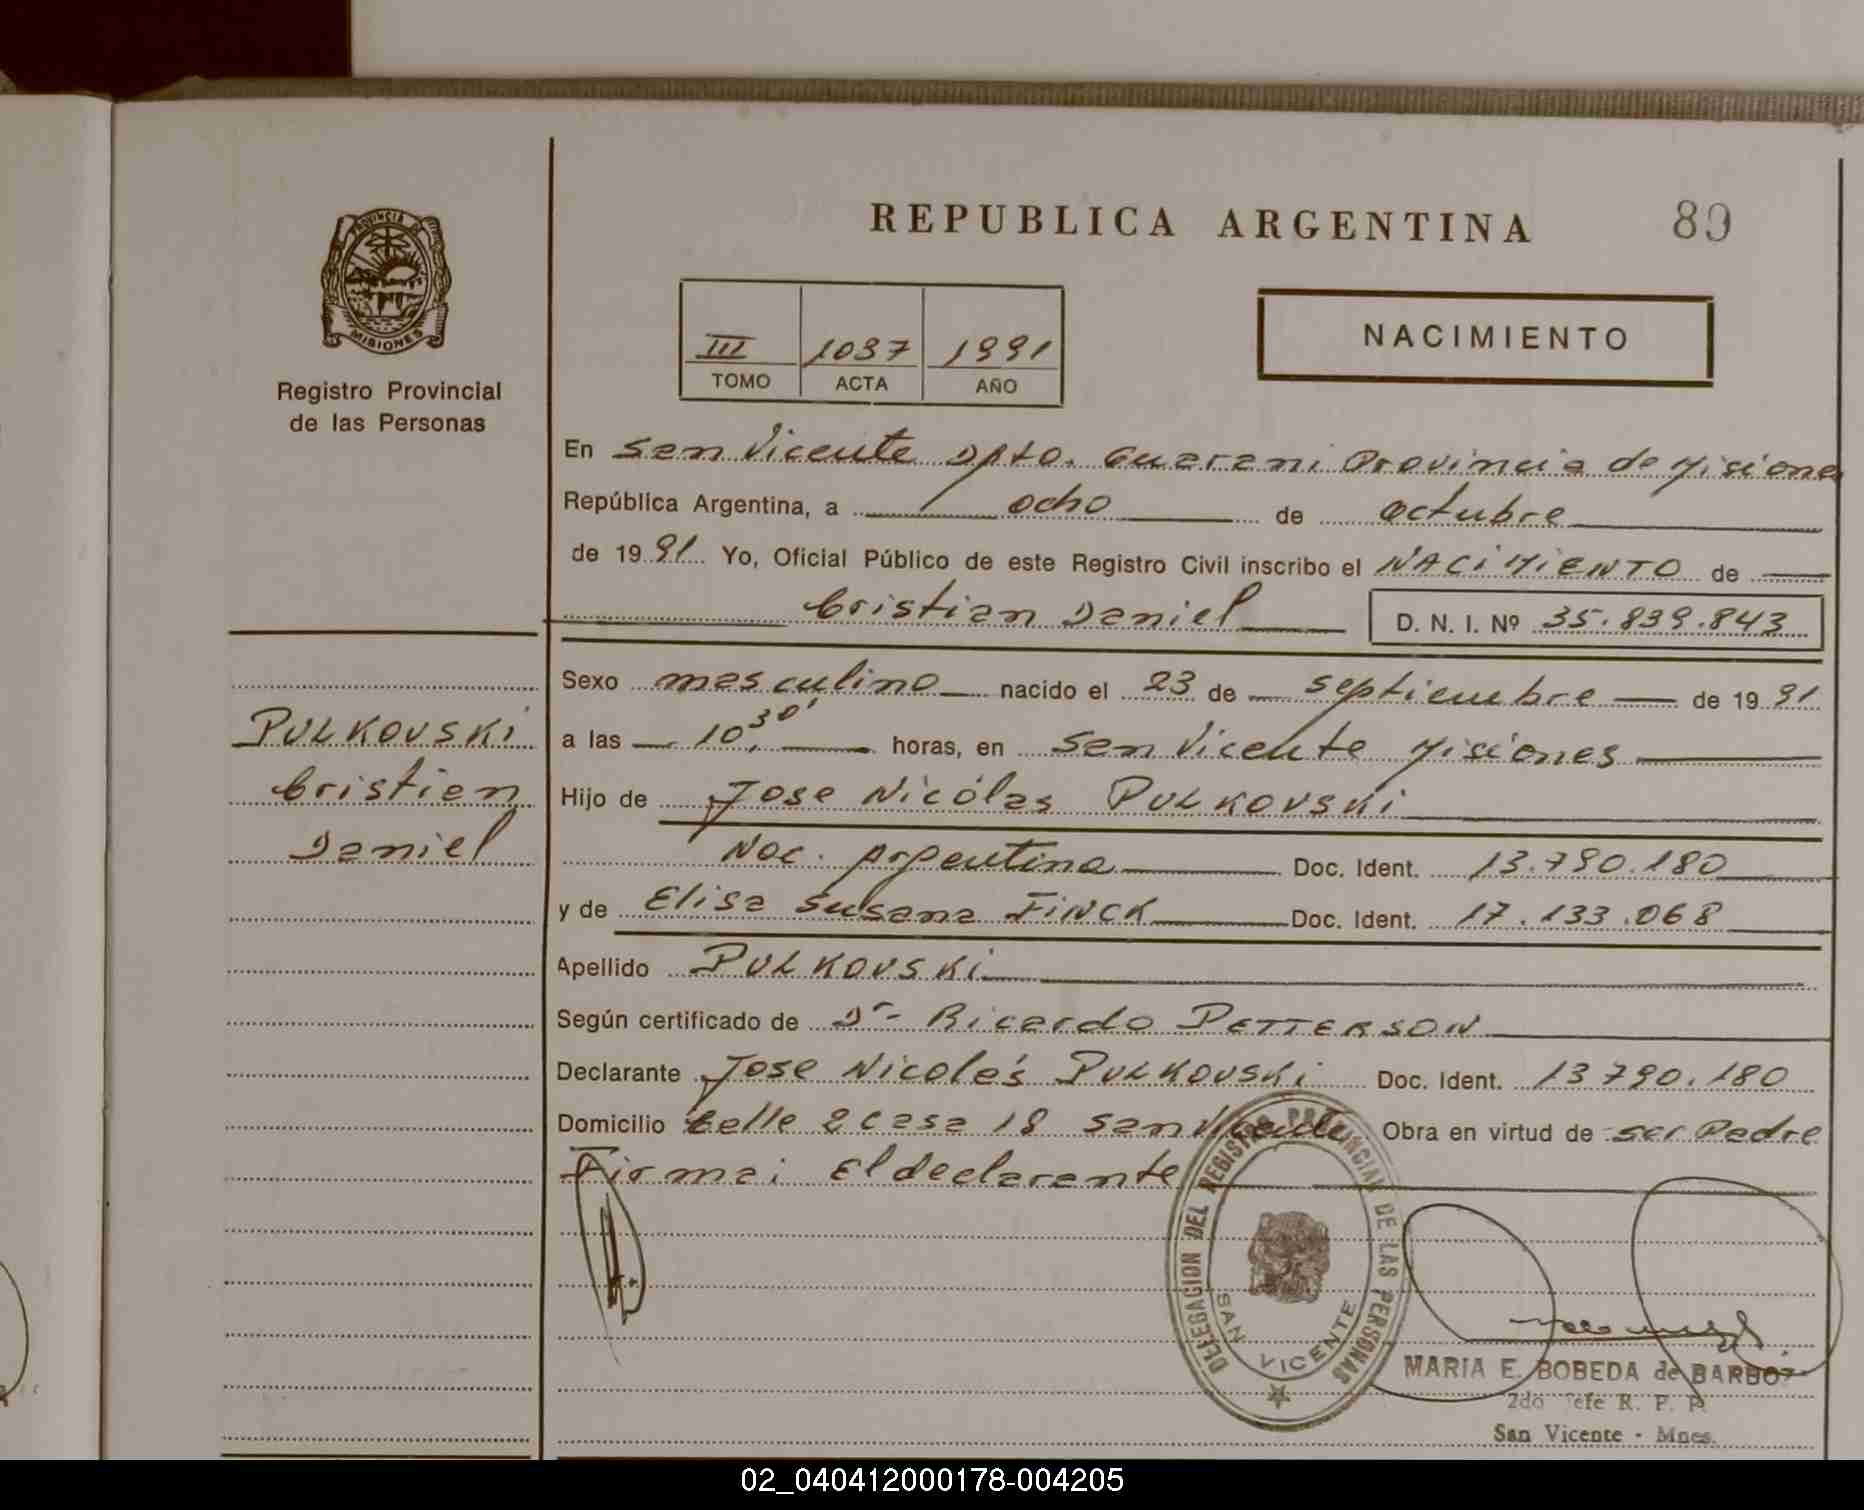 REPUBLICA ARGENTINA
89
PROVINCIA DE
MISIONES
Registro Provincial
de las Personas
III 1037 1991
TOMO ACTA AÑO
NACIMIENTO
En San Vicente Dpto. Guarani Provincia de Misiones
República Argentina, a ocho de octubre
de 1991 Yo, Oficial Público de este Registro Civil inscribo el NACIMIENTO de
Cristian Daniel D. N. I. Nº 35.839.843
Sexo masculino nacido el 23 de septiembre de 1991
PULKOVSKI
Cristian
Daniel
a las 10,30' horas, en San Vicente Misiones
Hijo de Jose Nicólas PULKOVSKI
Nac. Argentina Doc. Ident. 13.790.180
y de Elisa Susana FINCK Doc. Ident. 17.133.068
Apellido PULKOVSKI
Según certificado de Dr- Ricardo PETTERSON
Declarante Jose Nicolás PULKOVSKI Doc. Ident. 13790.180
Domicilio Calle 2 casa 18 San Vicente Obra en virtud de ser Padre
Firma: El declarante
DELEGACION DEL REGISTRO PROVINCIAL DE LAS PERSONAS
SAN VICENTE
MARIA E. BOBEDA de BARBOZ
2do Jefe R. P. P.
San Vicente - Mnes.
02_040412000178-004205